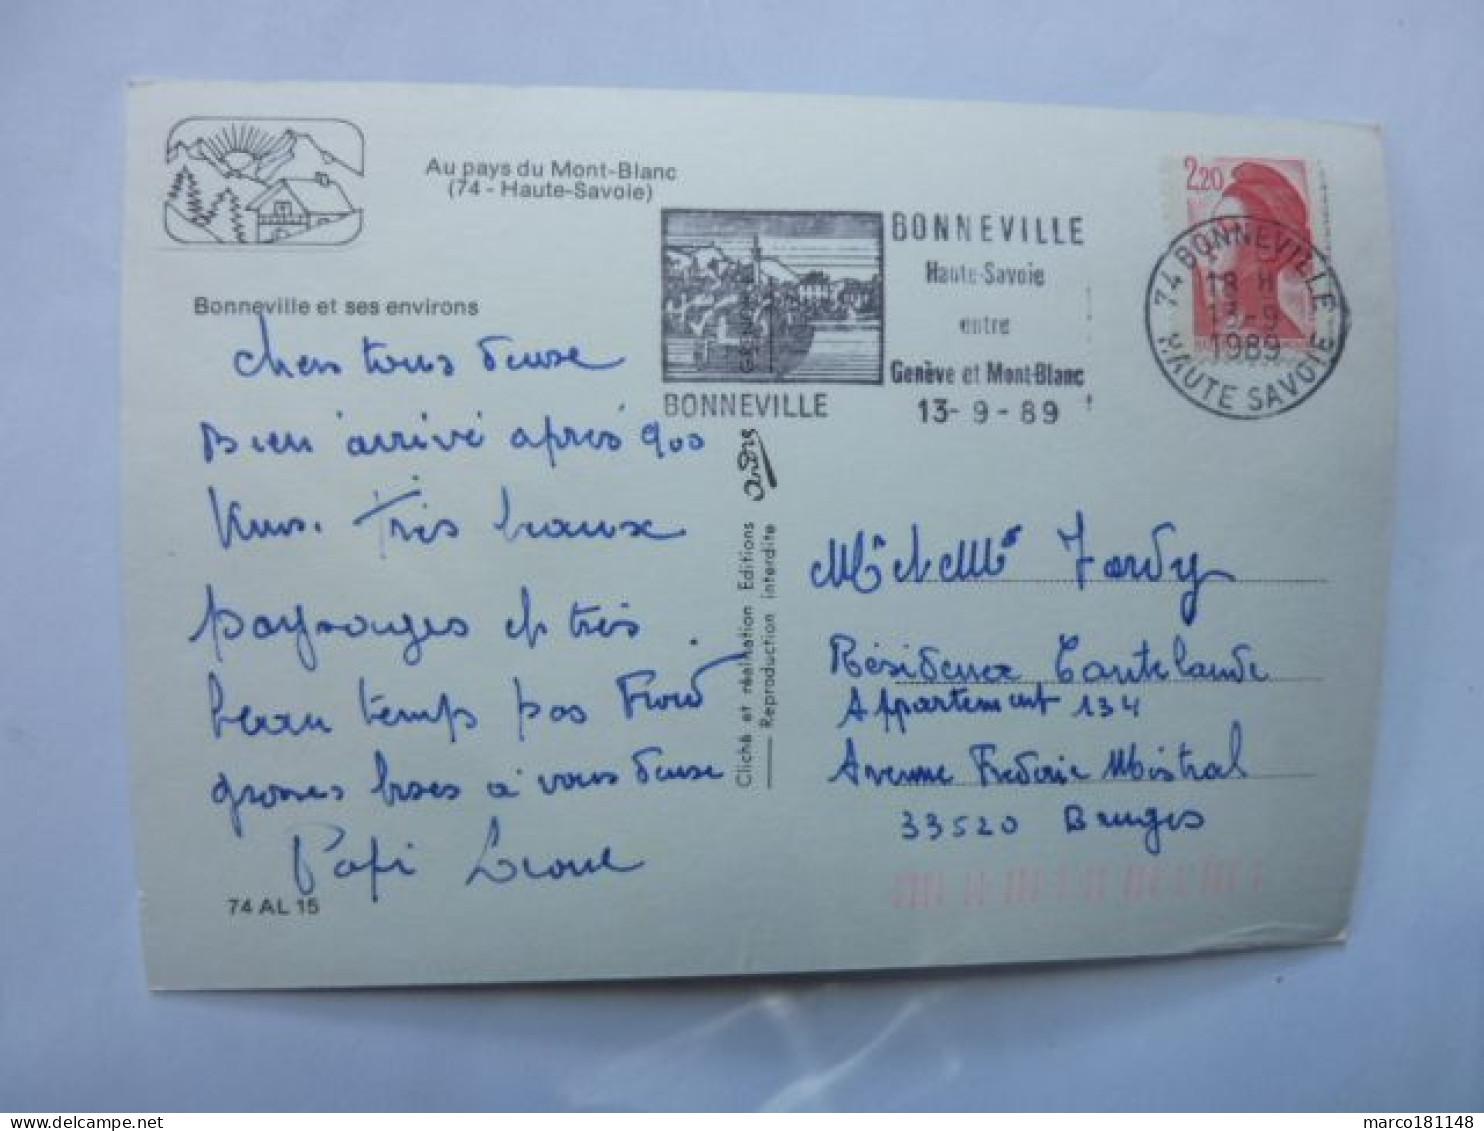 Au pays du Mont-Blanc
(74 - Haute-Savoie)
Bonneville et ses environs
BONNEVILLE
Haute-Savoie
entre
Genève et Mont-Blanc
13-9-89
BONNEVILLE
2,20
74 BONNEVILLE
18 H
13-9
1989
HAUTE SAVOIE
chers tous deux
Bien arrivé après 900
Kms. Très beaux
paysages et très
beau temps pas Froid.
grosses bises à vous deux
Papi
74 AL 15
Cliché et réalisation Editions André
Reproduction interdite
Mr et Mme Jardy
Résidence
Appartement 134
Avenue Frédéric Mistral
33520 Bruges
delcampe.net
marco181148